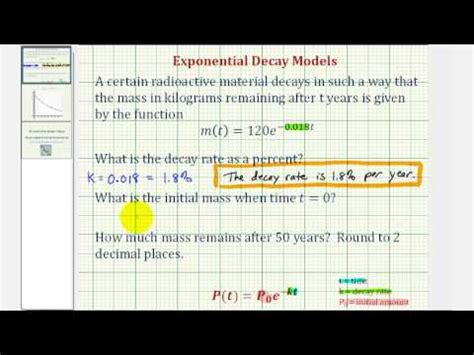 Exponential Decay Models
A certain radioactive material decays in such a way that
the mass in kilograms remaining after t years is given
by the function
m(t) = 120e^{-0.018t}
What is the decay rate as a percent?
K = 0.018 = 1.8%
The decay rate is 1.8% per year.
What is the initial mass when time t = 0?
How much mass remains after 50 years? Round to 2
decimal places.
P(t) = P₀e^{-kt}
t = time
k = decay rate
P₀ = initial amount